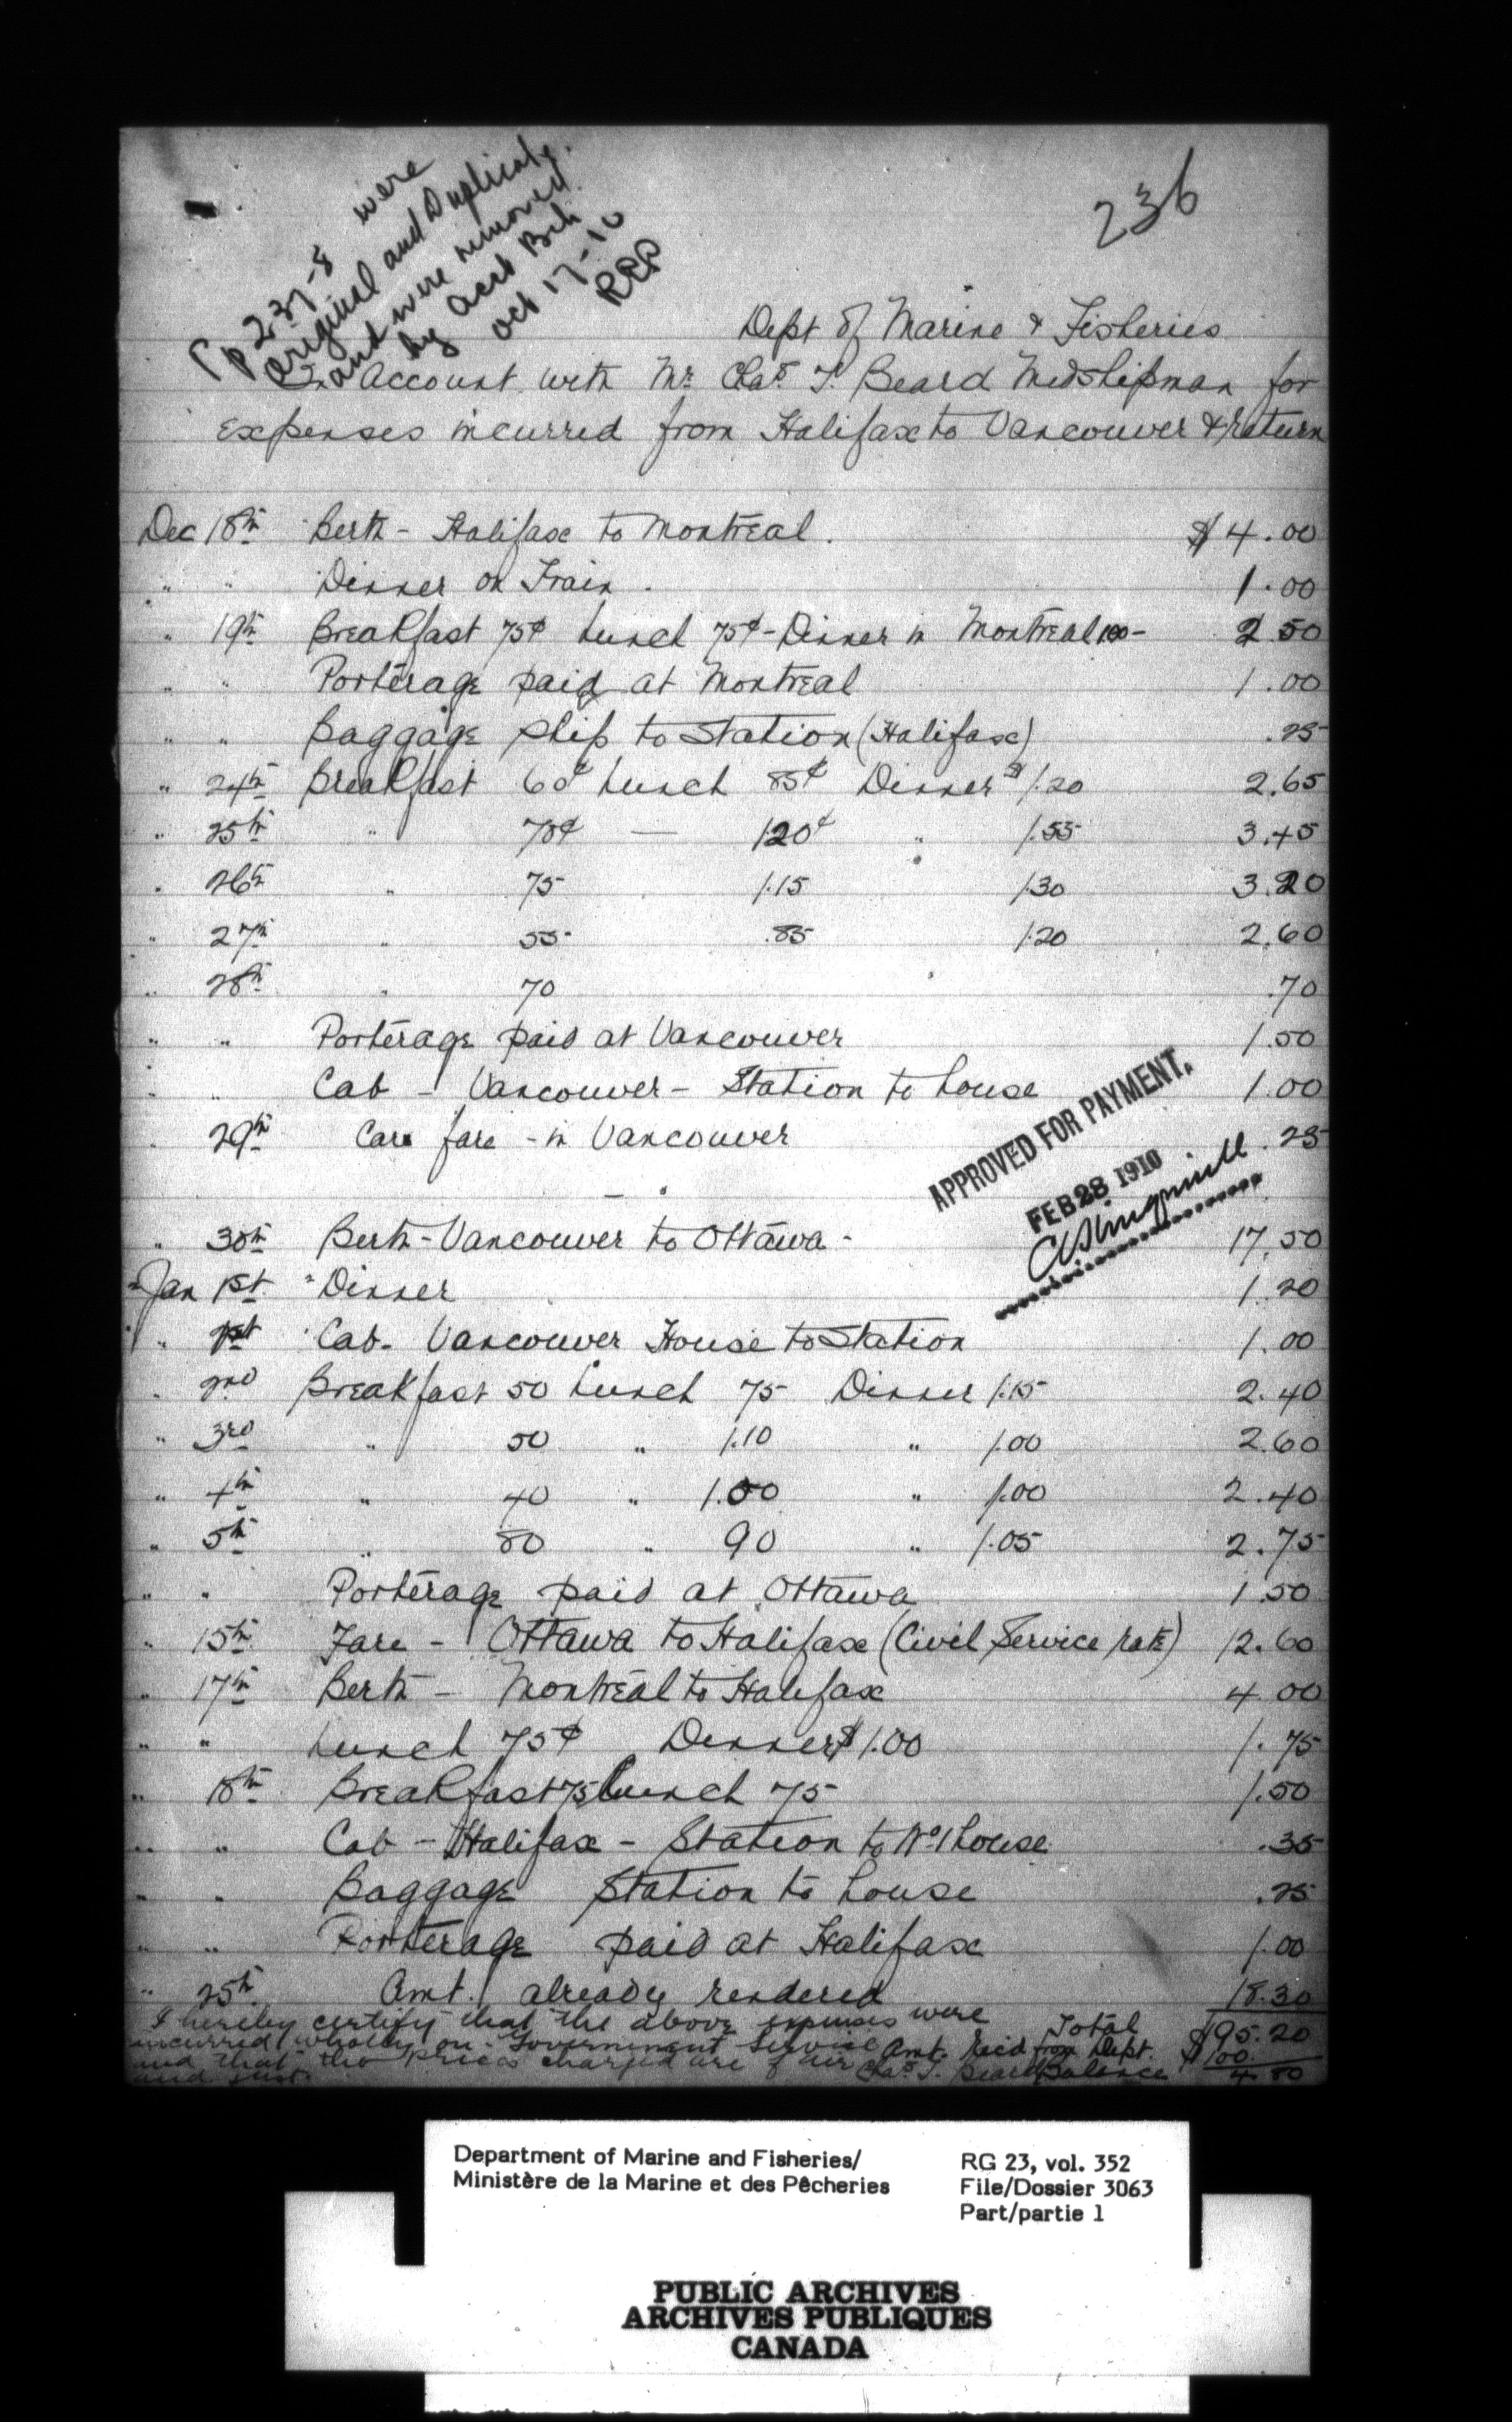 236
Pp 237-8 were
original and Duplicate.
and were removed
by Acct Bch
Oct 17-10
RRP
Dept of Marine & Fisheries
In Account with Mr Chas T. Beard Midshipman for
expenses incurred from Halifax to Vancouver & return
Dec 18th Berth - Halifax to Montreal. $4.00
" " Dinner on Train. 1.00
" 19th Breakfast 75¢ Lunch 75¢ - Dinner in Montreal 1.00 - 2.50
" " Porterage paid at Montreal 1.00
" " Baggage ship to station (Halifax) .25
" 24th Breakfast 60¢ Lunch 85¢ Dinner $1.20 2.65
" 25th " 70¢ — 1.20¢ " 1.55 3.45
" 26th " 75 1.15 1.30 3.20
" 27th " 55 .85 1.20 2.60
" 28th " 70 .70
" " Porterage paid at Vancouver 1.50
" " Cab - Vancouver - Station to house 1.00
" 29th Car fare - in Vancouver .25
APPROVED FOR PAYMENT.
FEB 28 1910
" 30th Berth - Vancouver to Ottawa - 17.50
Jan 1st " Dinner 1.20
" 1st Cab - Vancouver House to Station 1.00
" 2nd Breakfast 50 Lunch 75 Dinner 1.15 2.40
" 3rd " 50 " 1.10 " 1.00 2.60
" 4th " 40 " 1.00 " 1.00 2.40
" 5th " 80 " 90 " 1.05 2.75
" " Porterage paid at Ottawa 1.50
" 15th Fare - Ottawa to Halifax (Civil Service rate) 12.60
" 17th Berth - Montreal to Halifax 4.00
" " Lunch 75¢ Dinner $1.00 1.75
" 18th Breakfast 75 Lunch 75 1.50
" " Cab - Halifax - Station to No 1 house .35
" " Baggage Station to house .25
" " Porterage paid at Halifax 1.00
" 25th Amt. already rendered 18.30
I hereby certify that the above expenses were Total $95.20
incurred wholly on Government Service Amt. Rec'd from Dept. $100.
and that the prices charged are fair Chas T. Beard Balance 4.80
and just.
Department of Marine and Fisheries/
Ministère de la Marine et des Pêcheries
RG 23, vol. 352
File/Dossier 3063
Part/partie 1
PUBLIC ARCHIVES
ARCHIVES PUBLIQUES
CANADA